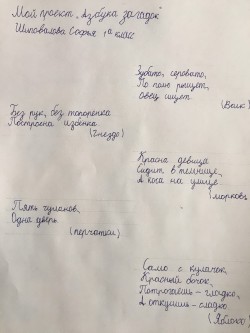 Мой проект „Азбука загадок"
Шиповалова Софья 1а класс
Зубато, серовато,
По полю рыщет,
Овец ищет.
(Волк)
Без рук, без топоренка
Построена избенка
(гнездо)
Красна девица
Сидит в темнице,
А коса на улице.
(морковь)
Пять чуланов,
Одна дверь
(перчатки)
Само с кулачок,
Красный бочок,
Потрогаешь - гладко,
А откусишь - сладко.
(Яблоко)